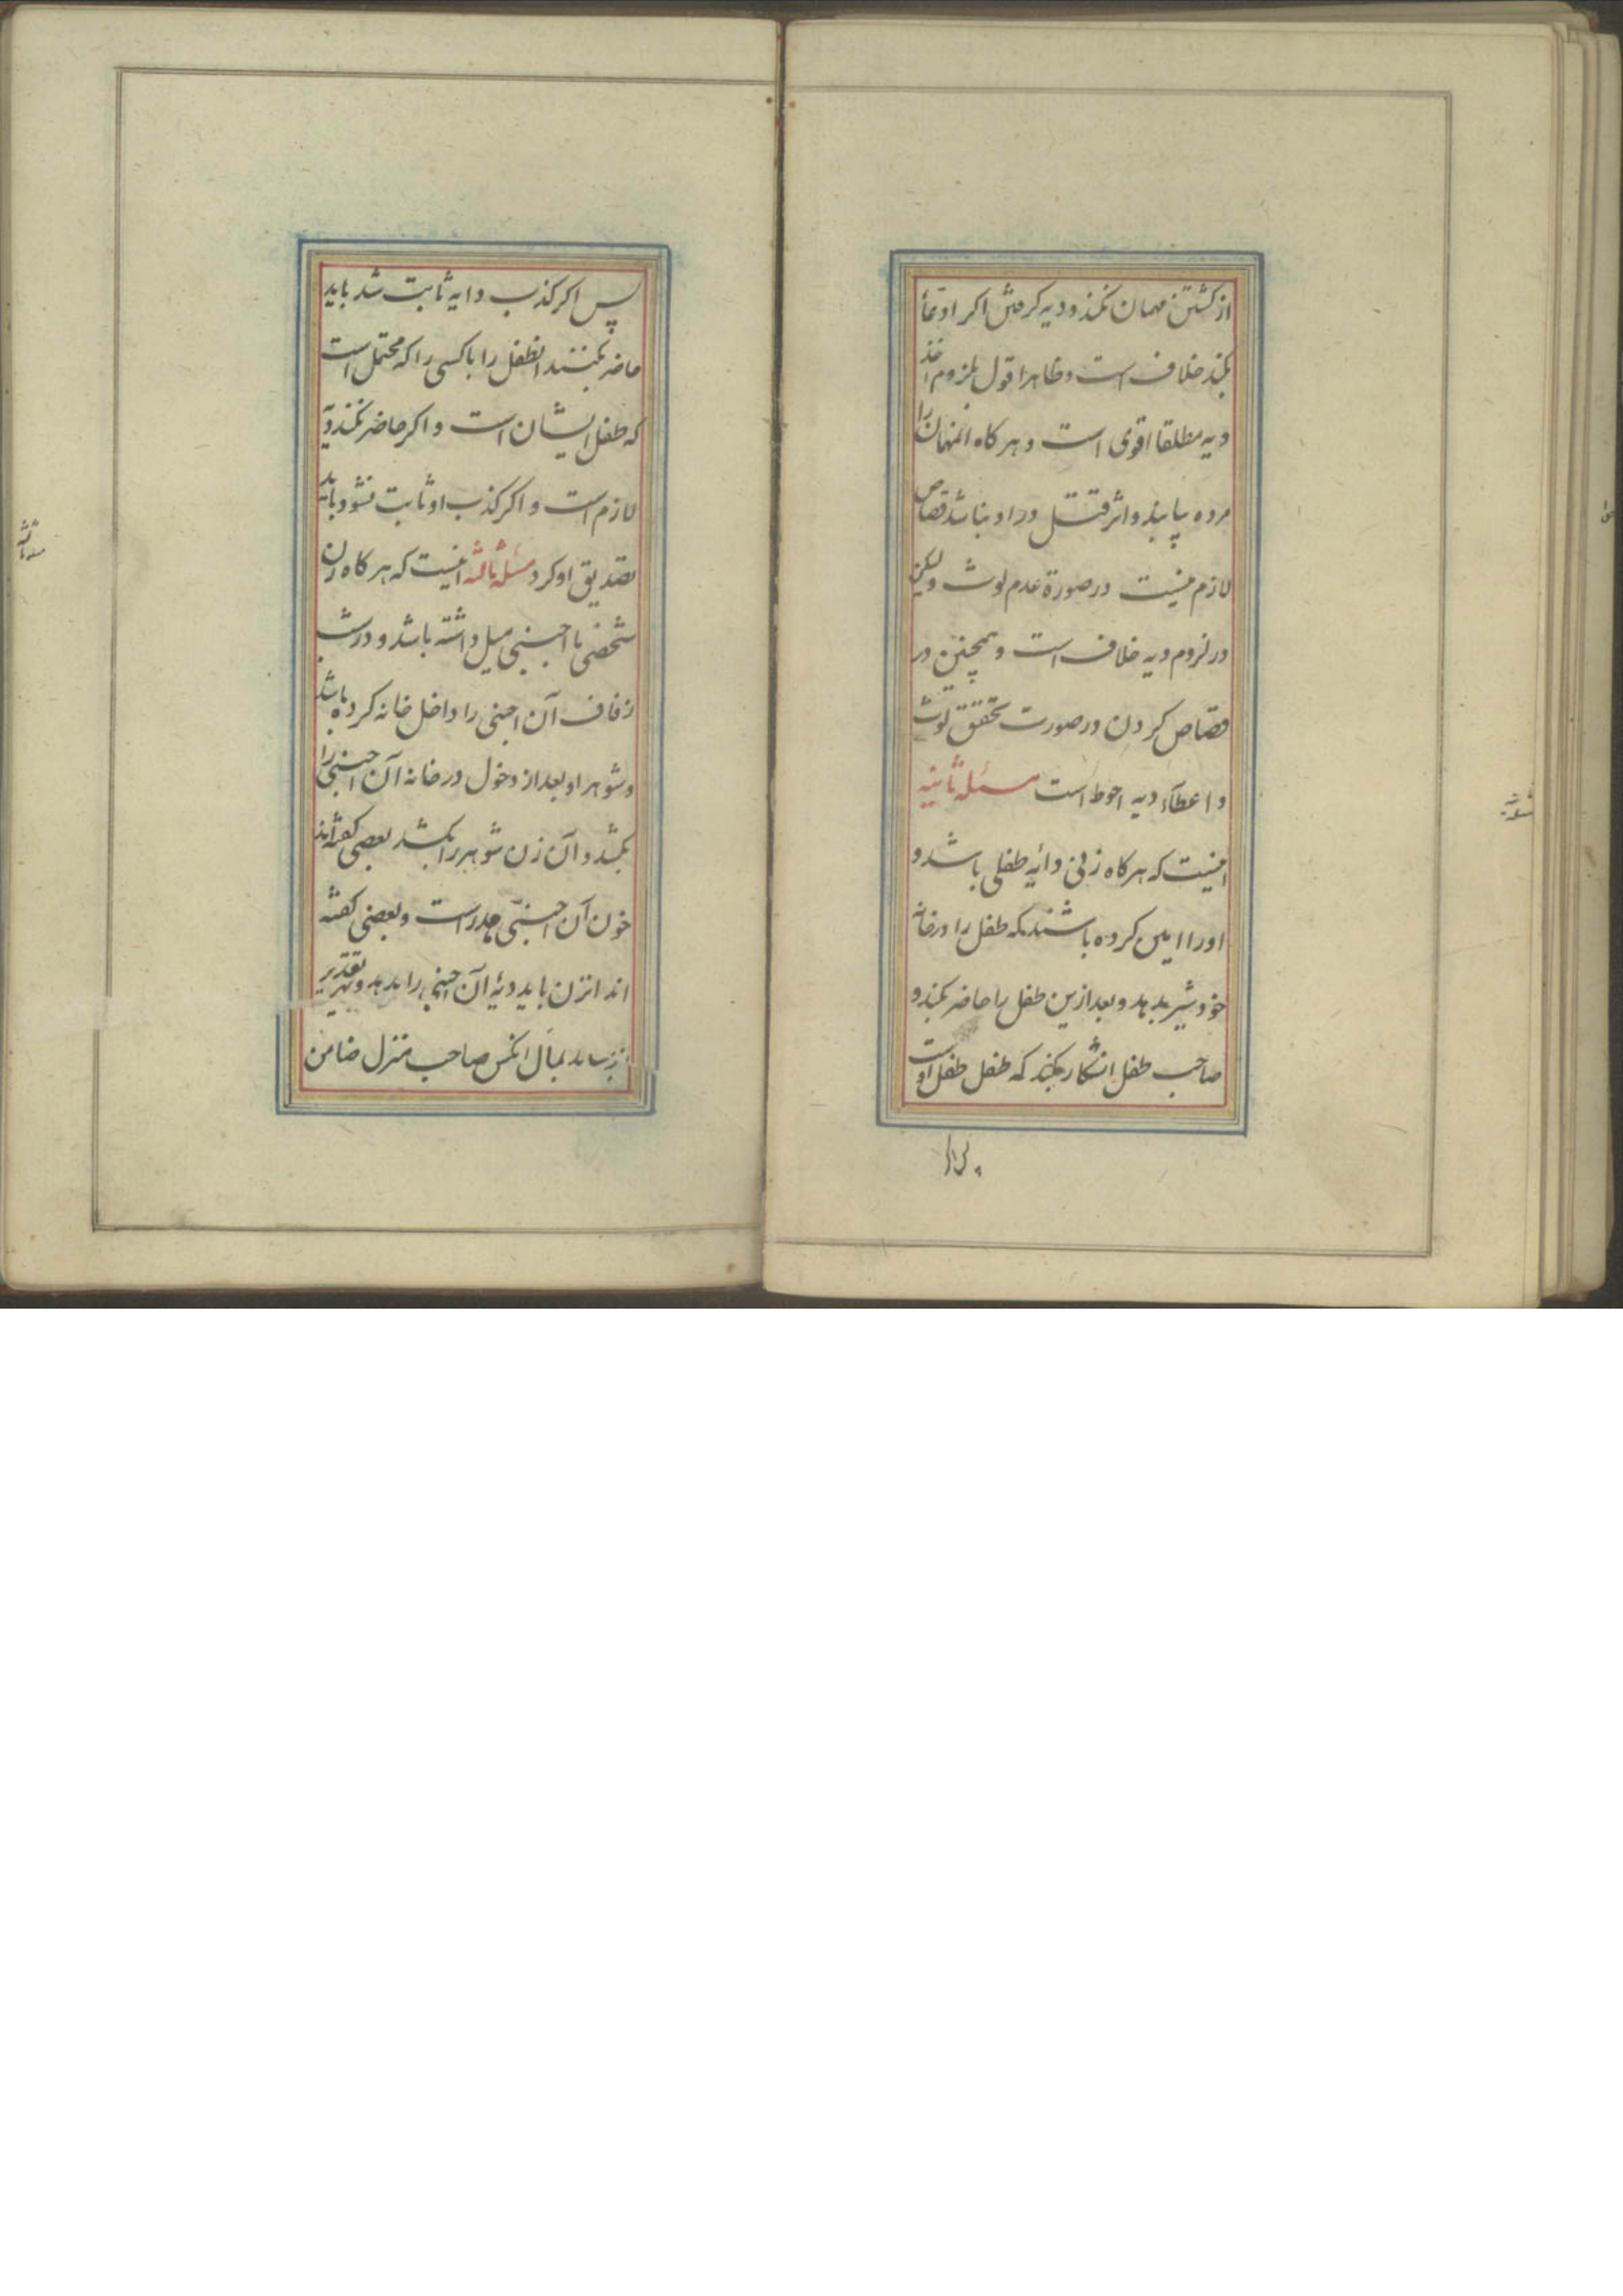 از کشتن مهمان نکند و دیه گرفتن اگر ادعا
بکند خلاف است و ظاهرا قول بلزوم اخذ
دیه مطلقا اقوی است و هرگاه انمهمان را
مرده بیابند و اثر قتل در او نباشد قصاص
لازم نیست در صورة عدم لوث ولیکن
در لزوم دیه خلاف است و همچنین در
قصاص کردن در صورت تحقق لوث
و اعطآء دیه احوط است مسئله ثانیه
اینست که هرگاه زنی دایه طفلی باشد و
او را امین کرده باشند که طفل را در خانه
خود شیر بدهد و بعد ازین طفل را حاضر بکند و
صاحب طفل انکار بکند که طفل طفل اوست
پس اگر کذب دایه ثابت شد باید
حاضر بکنند انطفل را یا کسی را که محتمل است
که طفل ایشان است و اگر حاضر نکند دیه
لازم است و اگر کذب او ثابت نشود باید
تصدیق او کرد مسئله ثالثه اینست که هرگاه زن
شخصی با اجنبی میل داشته باشد و در شب
زفاف آن اجنبی را داخل خانه کرده باشد
و شوهر او بعد از دخول در خانه آن اجنبی را
بکشد و آن زن شوهر را بکشد بعضی گفته‌اند
خون آن اجنبی هدر است و بعضی گفته
اند انزن باید دیهٔ آن اجنبی را بدهد و بهر تقدیر
بمال انکس صاحب منزل ضامن